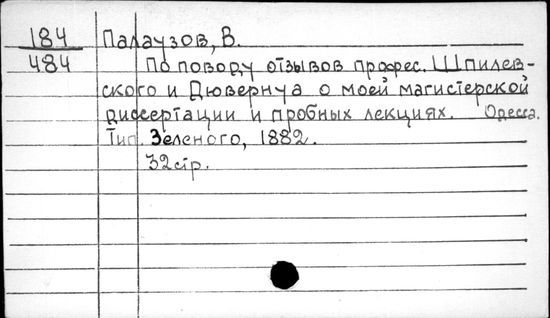 184 Палаузов, В.
484 По поводу отзывов профес. Шпилев-
ского и Дювернуа о моей магистерской
диссертации и пробных лекциях. Одесса.
Тип. Зеленого, 1882.
32 стр.